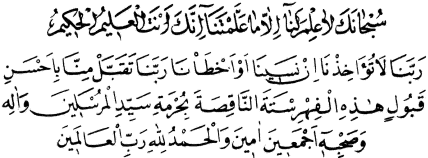 سُبْحَانَكَ لَا عِلْمَ لَنَا اِلَّا مَا عَلَّمْتَنَا اِنَّكَ اَنْتَ الْعَلِيمُ الْحَكِيمُ
رَبَّنَا لَا تُؤَاخِذْنَا اِنْ نَسِينَا اَوْ اَخْطَاْنَا رَبَّنَا تَقَبَّلْ مِنَّا بِاَحْسَنِ
قَبُولٍ هٰذِهِ الْفِهْرِسْتَةَ النَّاقِصَةَ بِحُرْمَةِ سَيِّدِ الْمُرْسَلِينَ وَاٰلِهِ
وَصَحْبِهِ اَجْمَعِينَ اٰمِينَ وَالْحَمْدُ لِلّٰهِ رَبِّ الْعَالَمِينَ